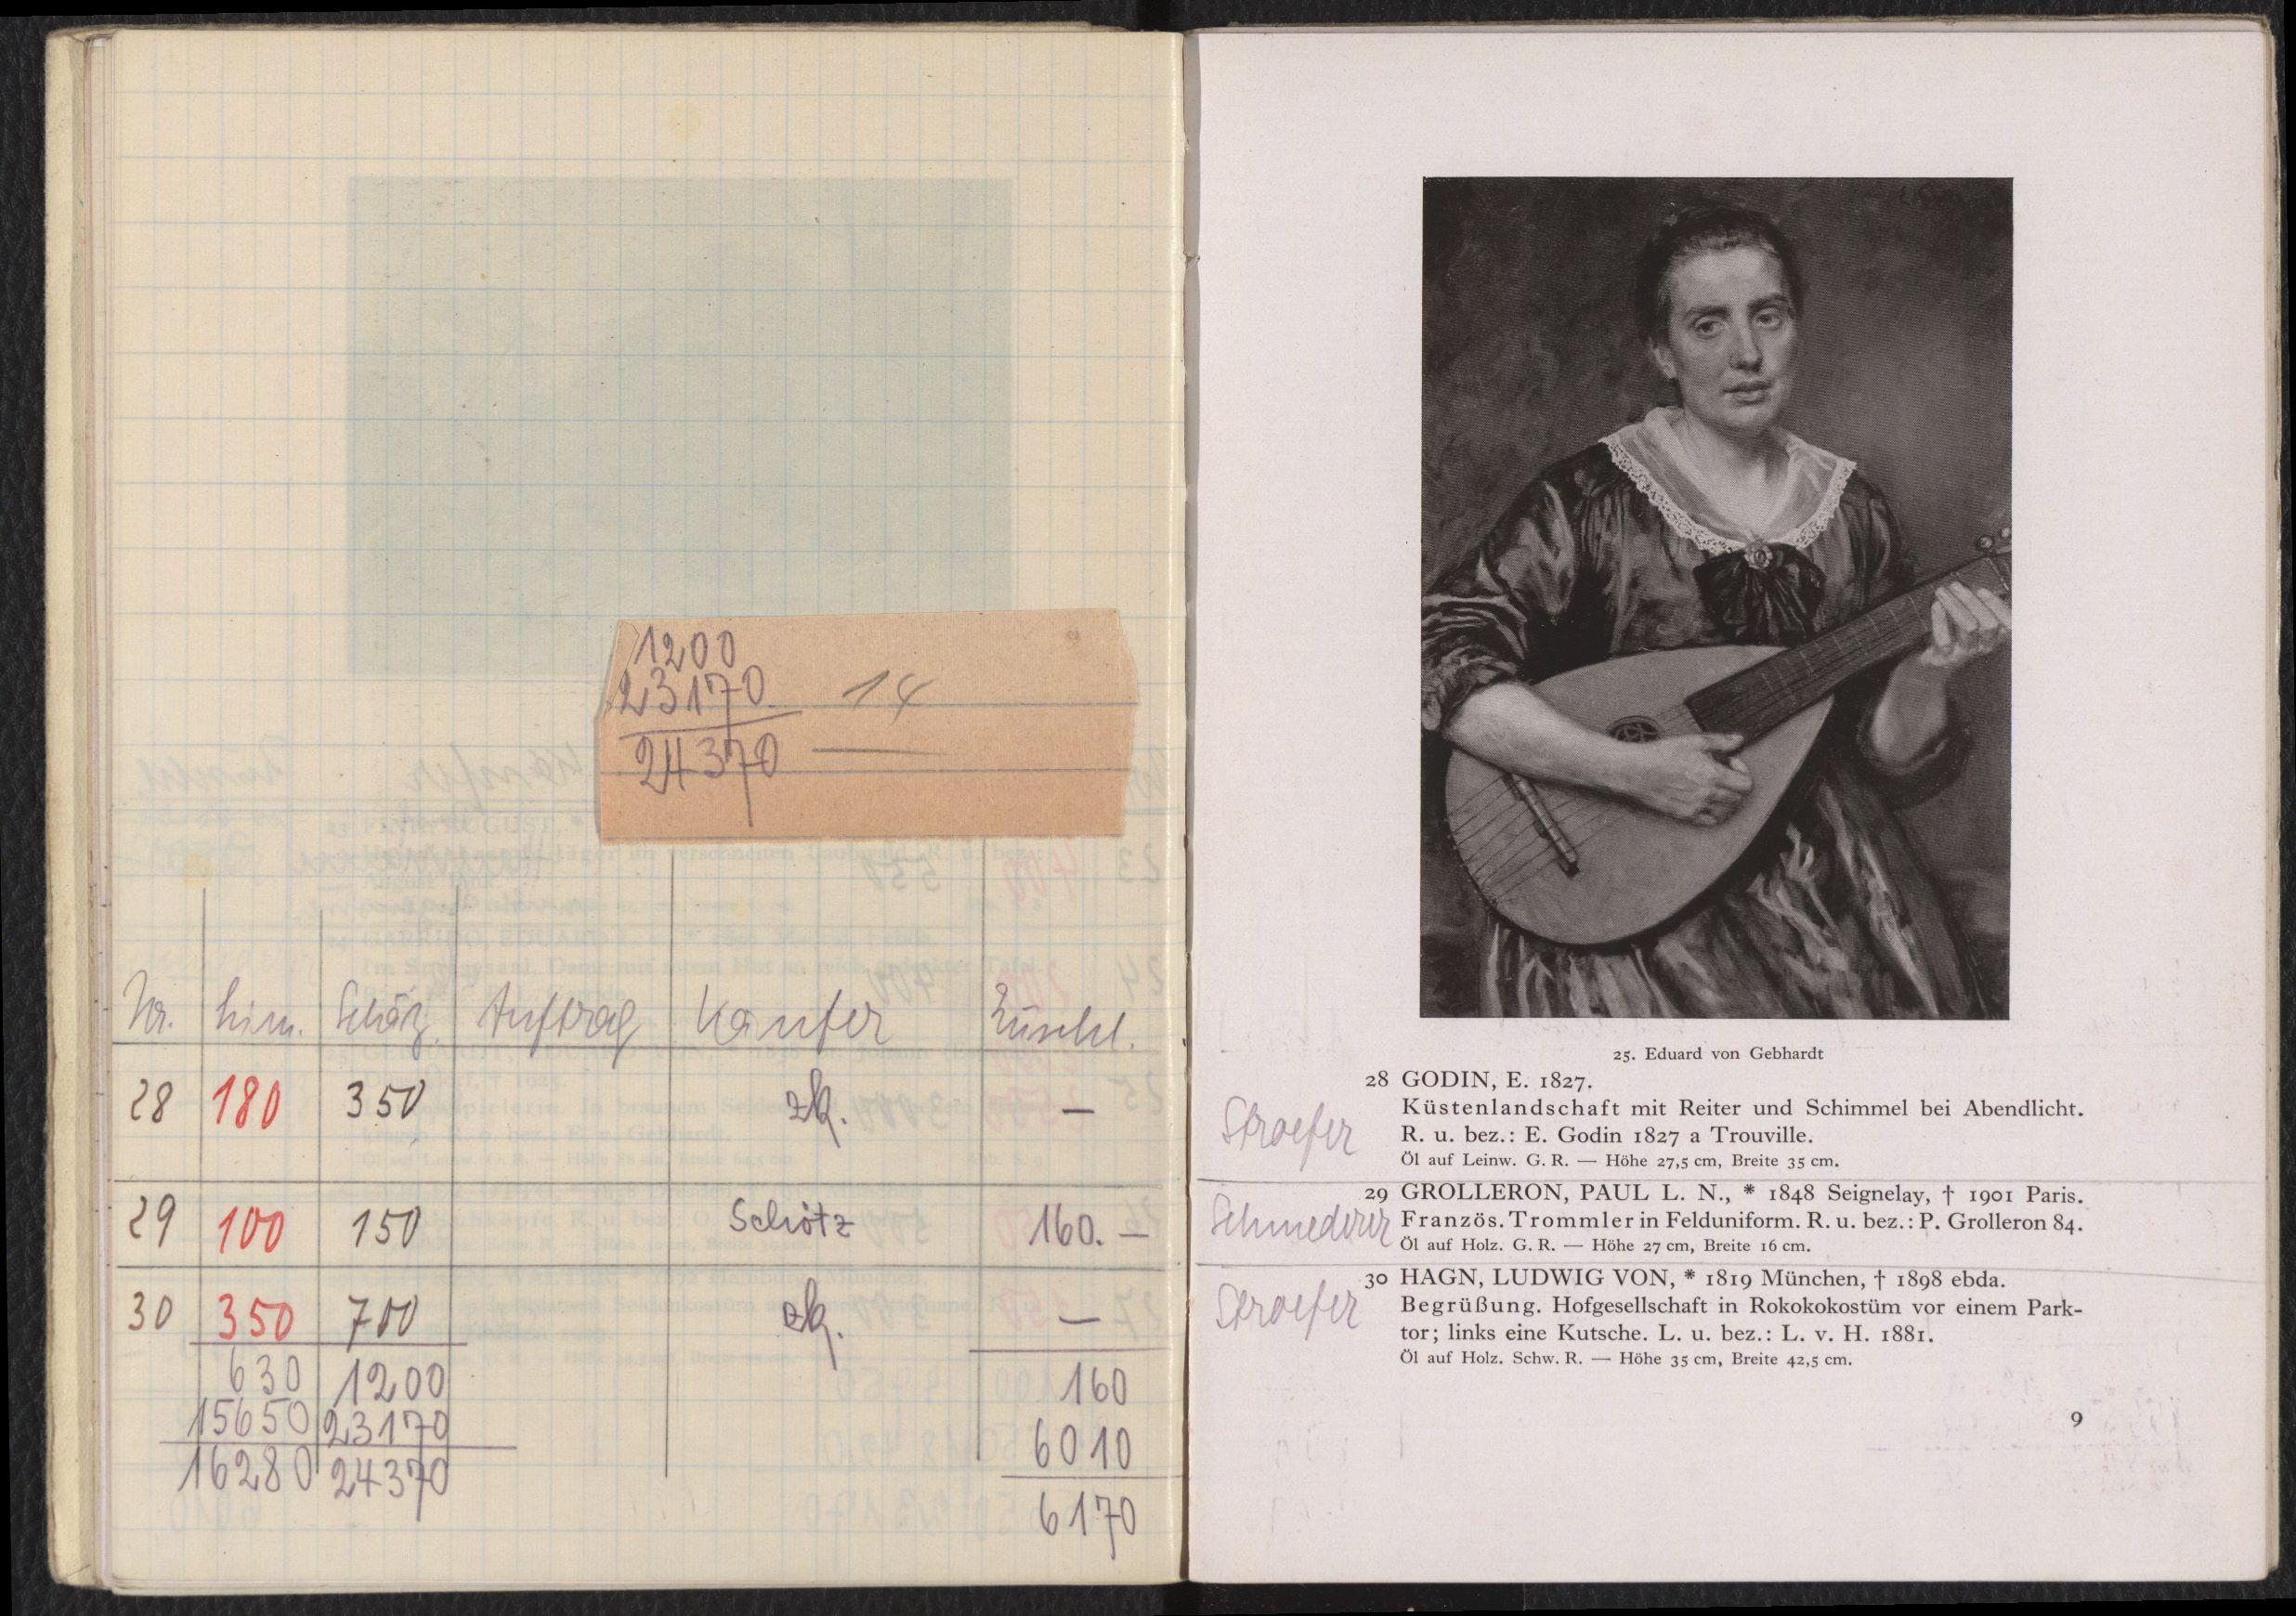 1200
23170 14
24370
Nr. Lim. Schätz. Auftrag Käufer Zuschl.
28 180 350 zk. —
29 100 150 Schötz 160.—
30 350 700 zk. —
630 1200 160
15650 23170 6010
16280 24370 6170
25. Eduard von Gebhardt
28 GODIN, E. 1827.
Stroefer
Küstenlandschaft mit Reiter und Schimmel bei Abendlicht.
R. u. bez.: E. Godin 1827 a Trouville.
Öl auf Leinw. G. R. — Höhe 27,5 cm, Breite 35 cm.
29 GROLLERON, PAUL L. N., * 1848 Seignelay, † 1901 Paris.
Schmederer
Französ. Trommler in Felduniform. R. u. bez.: P. Grolleron 84.
Öl auf Holz. G. R. — Höhe 27 cm, Breite 16 cm.
30 HAGN, LUDWIG VON, * 1819 München, † 1898 ebda.
Stroefer
Begrüßung. Hofgesellschaft in Rokokokostüm vor einem Park-
tor; links eine Kutsche. L. u. bez.: L. v. H. 1881.
Öl auf Holz. Schw. R. — Höhe 35 cm, Breite 42,5 cm.
9